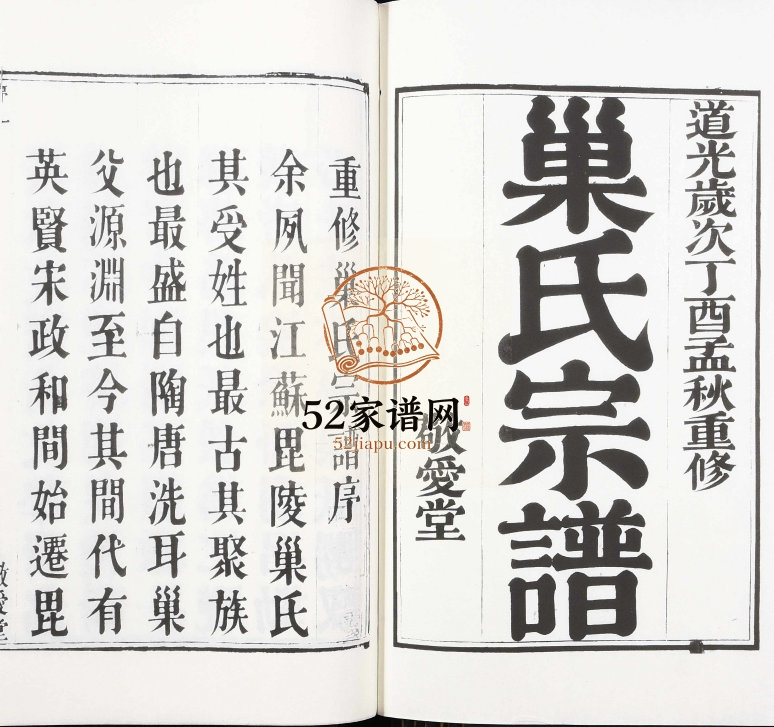 道光歲次丁酉孟秋重修
巢氏宗譜
敬愛堂
重修巢氏宗譜序
余夙聞江蘇毘陵巢氏
其受姓也最古其聚族
也最盛自陶唐洗耳巢
父源淵至今其間代有
英賢宋政和間始遷毘
敬愛堂
52家谱网
52jiapu.com